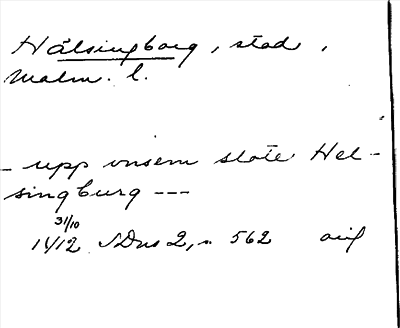 Hälsingborg, stad,
Malm. l.
- upp vnsem slote Hel-
singburg ---
31/10
1412 SDns 2, s. 562 avs